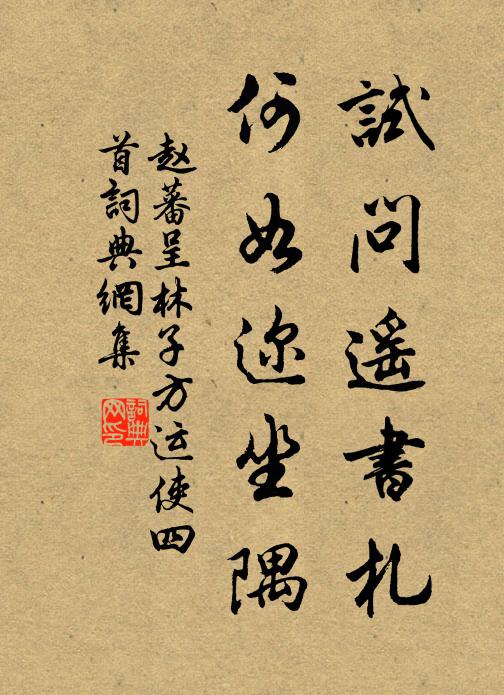 試問遥書札
何如迩坐隅
赵蕃呈林子方运使四
首詞典網集
詞典
网印